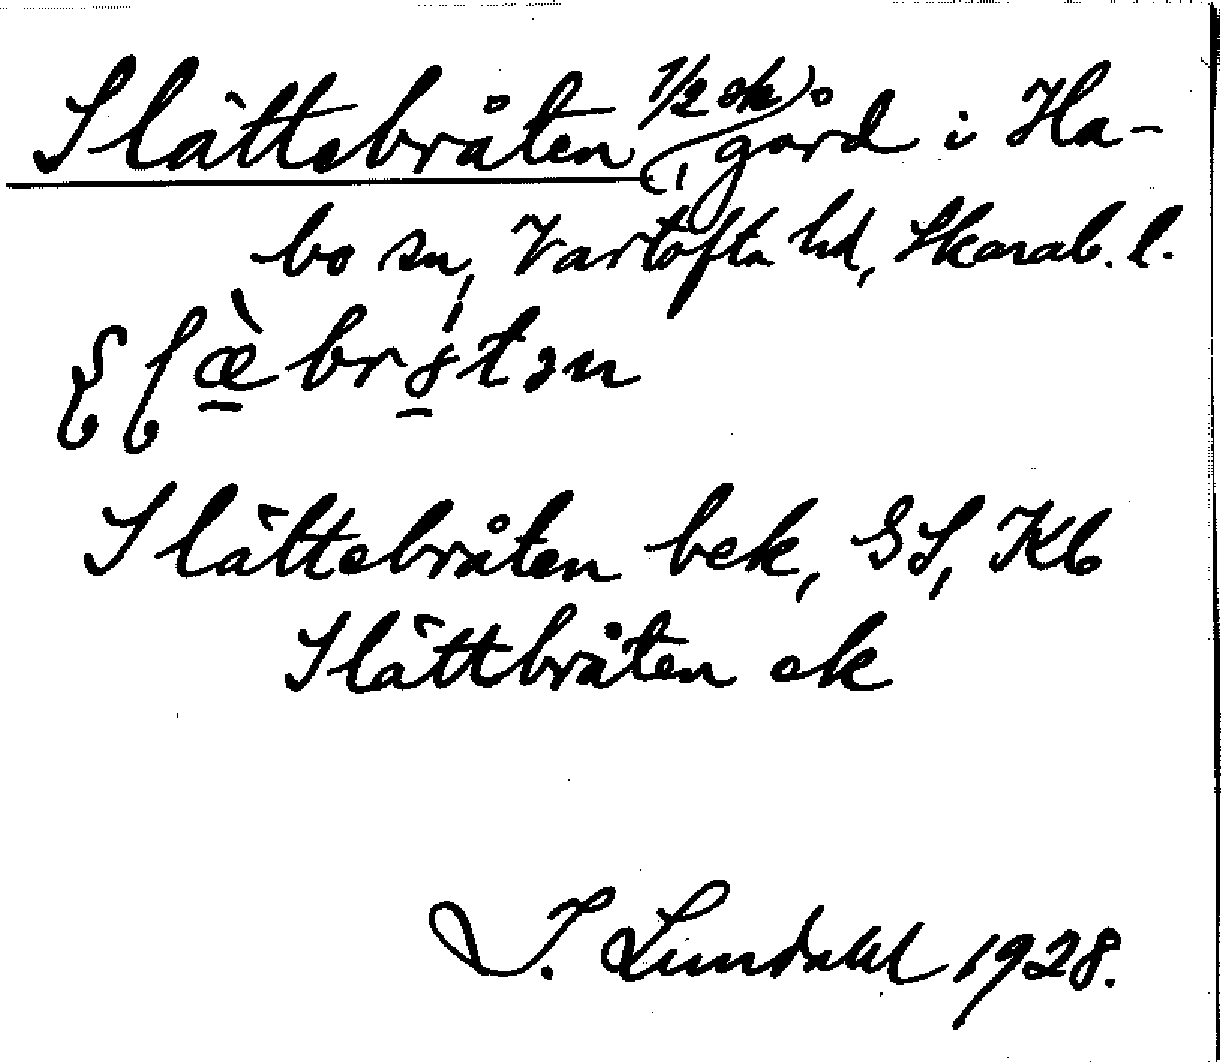 Slättebråten 1/2 sk, gård i Ha-
bo sn, Vartofta hd, Skarab. l.
Slättebråten bek, GS, Kb
Slättbråten ek
I. Lundahl 1928.